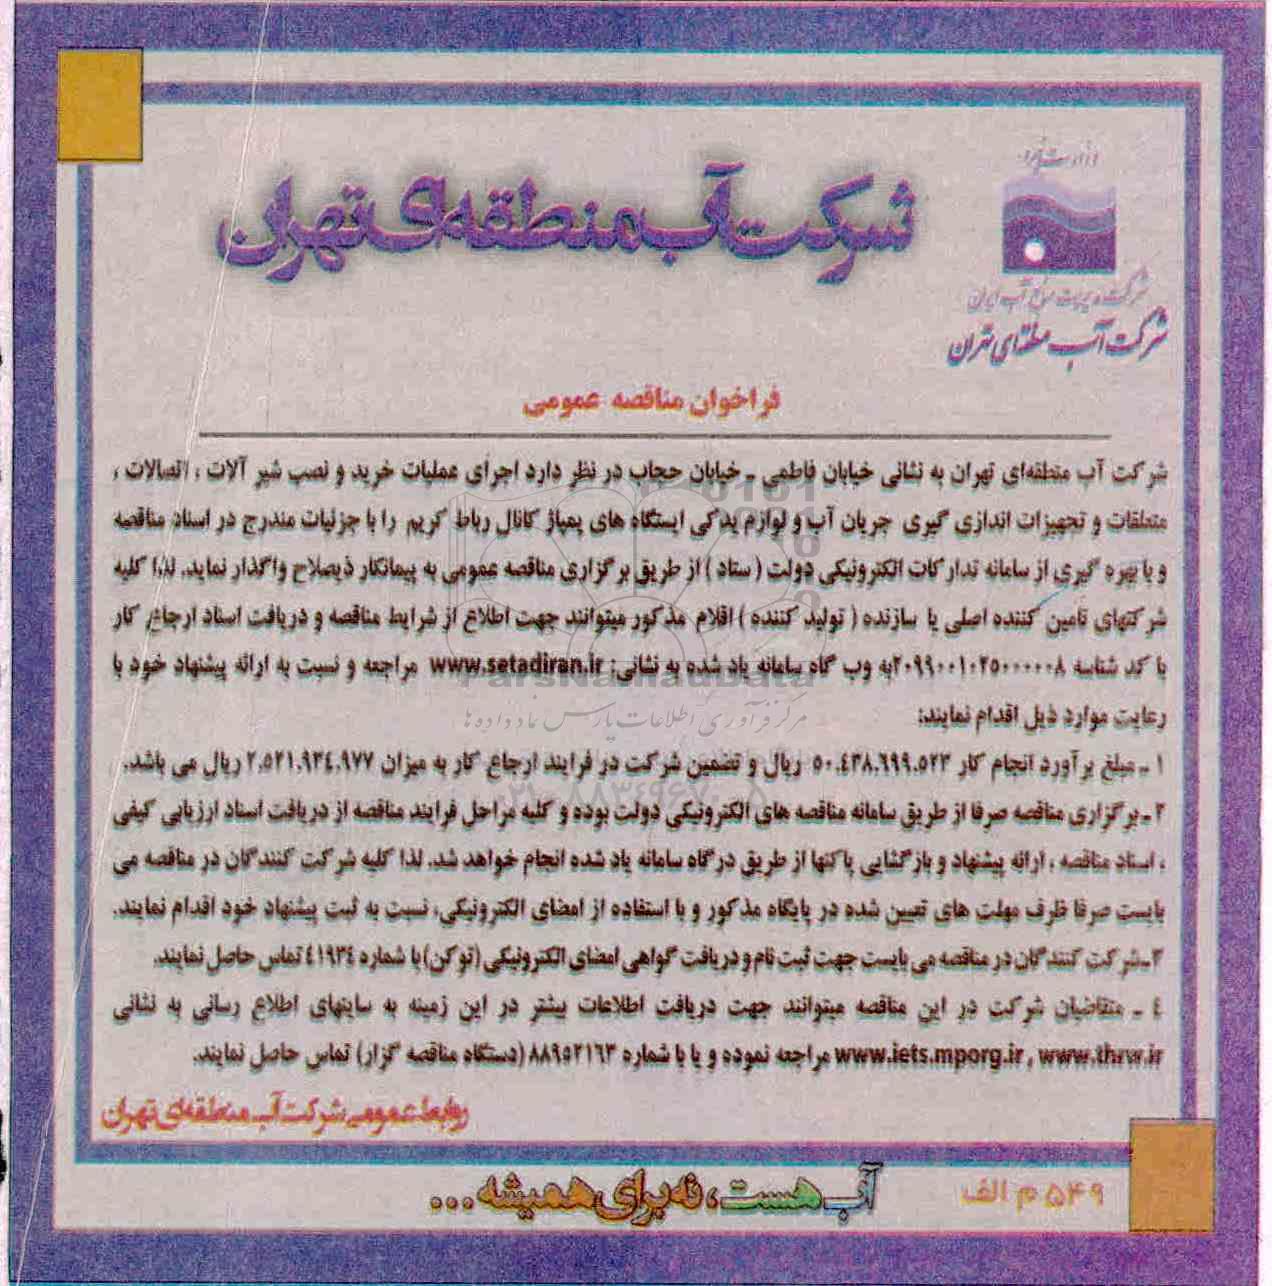 وزارت نیرو
شرکت مدیریت منابع آب ایران
شرکت آب منطقه‌ای تهران
شرکت آب منطقه‌ای تهران
فراخوان مناقصه عمومی
شرکت آب منطقه‌ای تهران به نشانی خیابان فاطمی ـ خیابان حجاب در نظر دارد اجرای عملیات خرید و نصب شیر آلات ، اتصالات ،
متعلقات و تجهیزات اندازی گیری جریان آب و لوازم یدکی ایستگاه های پمپاژ کانال رباط کریم را با جزئیات مندرج در اسناد مناقصه
و با بهره گیری از سامانه تدارکات الکترونیکی دولت ( ستاد ) از طریق برگزاری مناقصه عمومی به پیمانکار ذیصلاح واگذار نماید. لذا کلیه
شرکتهای تامین کننده اصلی یا سازنده ( تولید کننده ) اقلام مذکور میتوانند جهت اطلاع از شرایط مناقصه و دریافت اسناد ارجاع کار
با کد شناسه ۲۰۹۹۰۰۱۰۲۵۰۰۰۰۰۸به وب گاه سامانه یاد شده به نشانی: www.setadiran.ir مراجعه و نسبت به ارائه پیشنهاد خود با
رعایت موارد ذیل اقدام نمایند:
۱ ـ مبلغ برآورد انجام کار ۵۰.۴۳۸.۶۹۹.۵۲۳ ریال و تضمین شرکت در فرایند ارجاع کار به میزان ۲.۵۲۱.۹۳۴.۹۷۷ ریال می باشد.
۲ ـ برگزاری مناقصه صرفا از طریق سامانه مناقصه های الکترونیکی دولت بوده و کلیه مراحل فرایند مناقصه از دریافت اسناد ارزیابی کیفی
، اسناد مناقصه ، ارائه پیشنهاد و بازگشایی پاکتها از طریق درگاه سامانه یاد شده انجام خواهد شد. لذا کلیه شرکت کنندگان در مناقصه می
بایست صرفا ظرف مهلت های تعیین شده در پایگاه مذکور و با استفاده از امضای الکترونیکی، نسبت به ثبت پیشنهاد خود اقدام نمایند.
۳ـشرکت کنندگان در مناقصه می بایست جهت ثبت نام و دریافت گواهی امضای الکترونیکی (توکن) با شماره ۴۱۹۳۴ تماس حاصل نمایند.
۴ ـ متقاضیان شرکت در این مناقصه میتوانند جهت دریافت اطلاعات بیشتر در این زمینه به سایتهای اطلاع رسانی به نشانی
www.iets.mporg.ir , www.thrw.ir مراجعه نموده و یا با شماره ۸۸۹۵۲۱۶۳ (دستگاه مناقصه گزار) تماس حاصل نمایند.
روابط عمومی شرکت آب منطقه‌ای تهران
۵۴۹ م الف
آب هست، نه برای همیشه ...
ParsNamadData
مرکز فرآوری اطلاعات پارس نماد داده ها